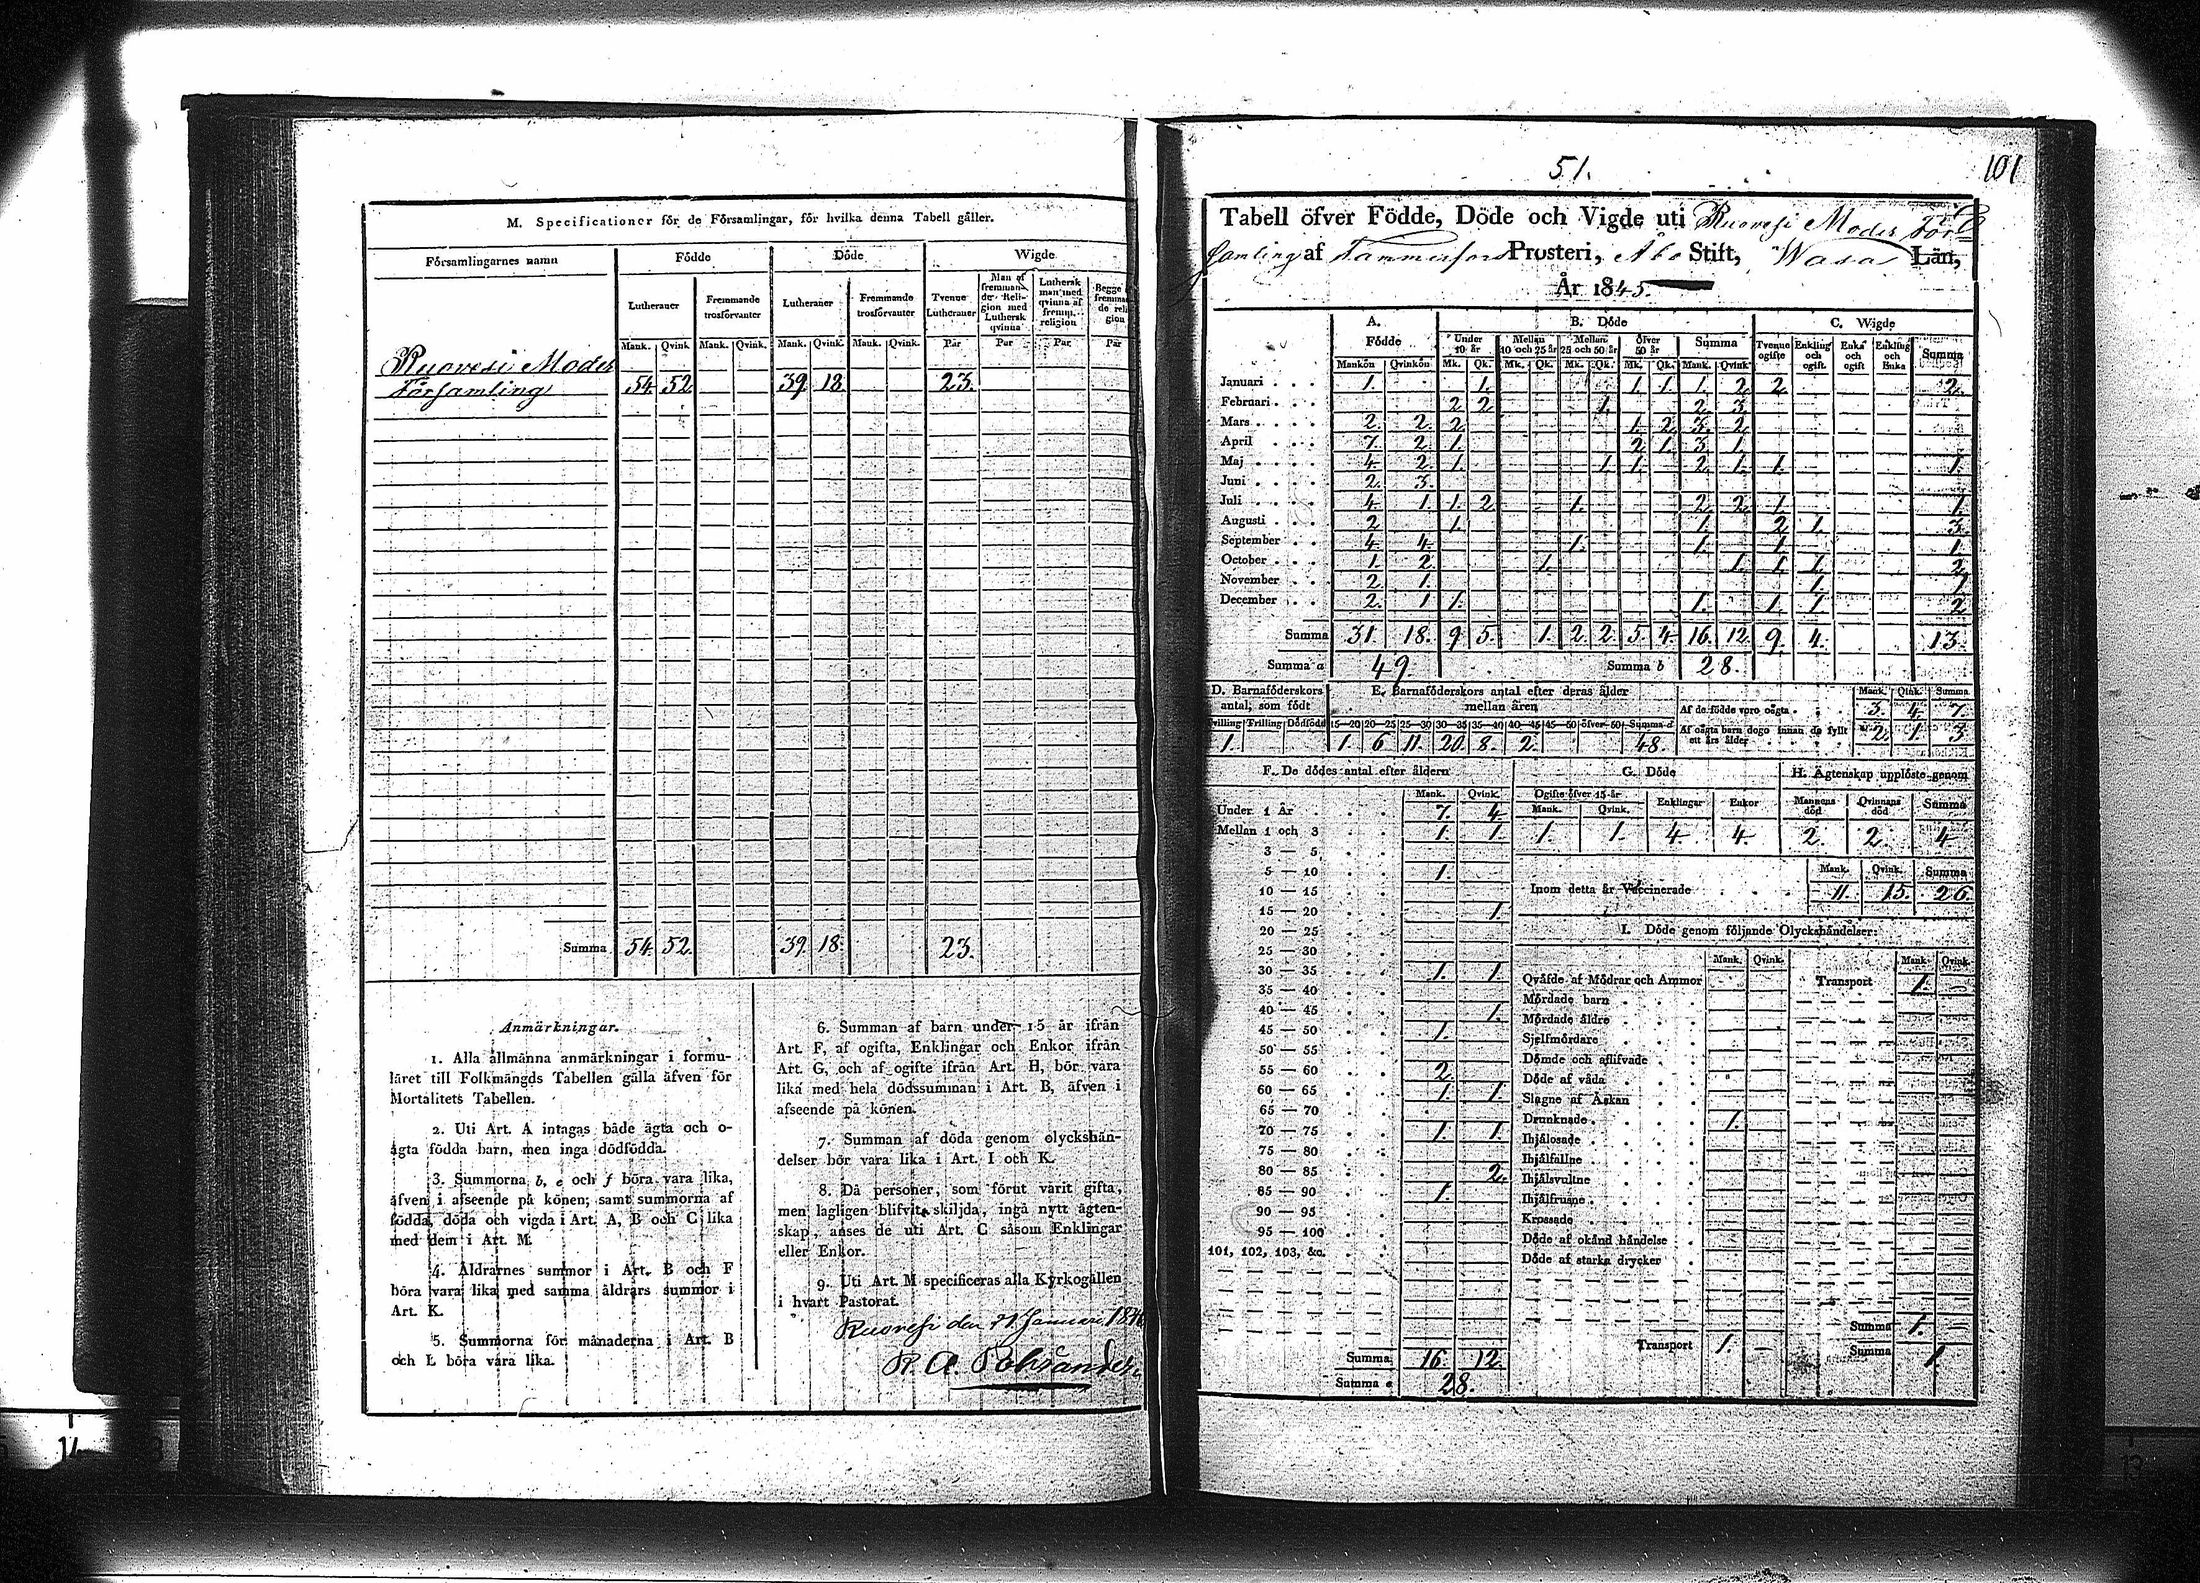 M. Specificationer för de Församlingar, för hvilka denna Tabell gäller.
Församlingarnes namn | Födde | Döde | Wigde
Lutheraner | Fremmande trosförvanter | Lutheraner | Fremmande trosförvanter | Tvenne Lutheraner | Man af fremmande Religion med Luthersk qvinna | Luthersk man med qvinna af fremm. religion | Begge fremmande religion
Mank. | Qvink. | Mank. | Qvink. | Mank. | Qvink. | Mank. | Qvink. | Par | Par | Par | Par
Ruovesi Moder
Församling 54. 52. 39. 18. 23.
Summa 54. 52. 39. 18. 23.
Anmärkningar.
1. Alla allmänna anmärkningar i formu-
läret till Folkmängds Tabellen gälla äfven för
Mortalitets Tabellen.
2. Uti Art. A intagas både ägta och o-
ägta födda barn, men inga dödfödda.
3. Summorna b, e och f böra vara lika,
äfven i afseende på könen; samt summorna af
födda, döda och vigda i Art. A, B och C lika
med dem i Art. M.
4. Åldrarnes summor i Art. B och F
böra vara lika med samma åldrars summor i
Art. K.
5. Summorna för månaderna i Art. B
och L böra vara lika.
6. Summan af barn under 15 år ifrån
Art. F, af ogifta, Enklingar och Enkor ifrån
Art. G, och af ogifte ifrån Art. H, bör vara
lika med hela dödssumman i Art. B, äfven i
afseende på könen.
7. Summan af döda genom olyckshän-
delser bör vara lika i Art. I och K.
8. Då personer, som förut varit gifta,
men lagligen blifvit skiljda, ingå nytt ägten-
skap, anses de uti Art. C såsom Enklingar
eller Enkor.
9. Uti Art. M specificeras alla Kyrkogällen
i hvart Pastorat.
Ruovesi den Januari
51.
101
Tabell öfver Födde, Döde och Vigde uti Ruovesi Moder För
samling af Tammerfors Prosteri, Åbo Stift, Wasa Län,
År 1845.
A. Födde | B. Döde | C. Wigde
Under 10 år | Mellan 10 och 25 år | Mellan 25 och 50 år | Öfver 50 år | Summa | Tvenne ogifte | Enkling och ogift | Enka och ogift | Enkling och Enka | Summa
Mankön | Qvinkön | Mk. | Qk. | Mk. | Qk. | Mk. | Qk. | Mk. | Qk. | Mank. | Qvink.
Januari 1. 1. 1. 1. 1. 2. 2. 2.
Februari 2. 2. 1. 2. 3.
Mars 2. 2. 2. 1. 2. 3. 2.
April 7. 2. 1. 2. 1. 3. 1.
Maj 4. 2. 1. 1. 1. 2. 1. 1. 1.
Juni 2. 3.
Juli 4. 1. 1. 2. 1. 2. 2. 1. 1.
Augusti 2. 1. 1. 2. 1. 3.
September 4. 4. 1. 1. 1. 1.
October 1. 2. 1. 1. 1. 1. 2.
November 2. 1. 1. 1
December 2. 1 1. 1. 1. 1. 2
Summa 31. 18. 9. 5. 1. 2. 2. 5. 4. 16. 12. 9. 4. 13.
Summa a 49. Summa b 28.
D. Barnaföderskors antal, som födt
Tvilling | Trilling | Dödfödd
1.
E. Barnaföderskors antal efter deras ålder mellan åren
15—20 | 20—25 | 25—30 | 30—35 | 35—40 | 40—45 | 45—50 | öfver 50 | Summa d
1. 6. 11. 20. 8. 2. 48.
Mank. | Qvink. | Summa
Af de födde voro oägta 3. 4. 7.
Af oägta barn dogo innan de fyllt ett års ålder 2. 1. 3.
F. De dödes antal efter åldern
Mank. | Qvink.
Under 1 År 7. 4.
Mellan 1 och 3 1. 1.
3 — 5
5 — 10 1.
10 — 15
15 — 20 1.
20 — 25
25 — 30
30 — 35 1. 1.
35 — 40
40 — 45 1.
45 — 50 1.
50 — 55
55 — 60 2.
60 — 65 1. 1.
65 — 70
70 — 75 1. 1.
75 — 80
80 — 85 2.
85 — 90 1.
90 — 95
95 — 100
101, 102, 103, &c.
Summa 16. 12.
Summa 28.
G. Döde
Ogifte öfver 15 år | Enklingar | Enkor
Mank. | Qvink.
1. 1. 4. 4.
H. Ägtenskap upplöste genom
Mannens död | Qvinnans död | Summa
2. 2. 4
Mank. | Qvink. | Summa
Inom detta år Vaccinerade 11. 15. 26.
I. Döde genom följande Olyckshändelser:
Mank. | Qvink. | Mank. | Qvink.
Qväfde af Mödrar och Ammor
Mördade barn
Mördade äldre
Sjelfmördare
Dömde och aflifvade
Döde af våda
Slagne af Åskan
Drunknade 1.
Ihjälosade
Ihjälfallne
Ihjälsvultne
Ihjälfrusne
Krossade
Döde af okänd händelse
Döde af starka drycker
Transport 1. —
Transport 1. —
Summa 1. —
Summa 1.